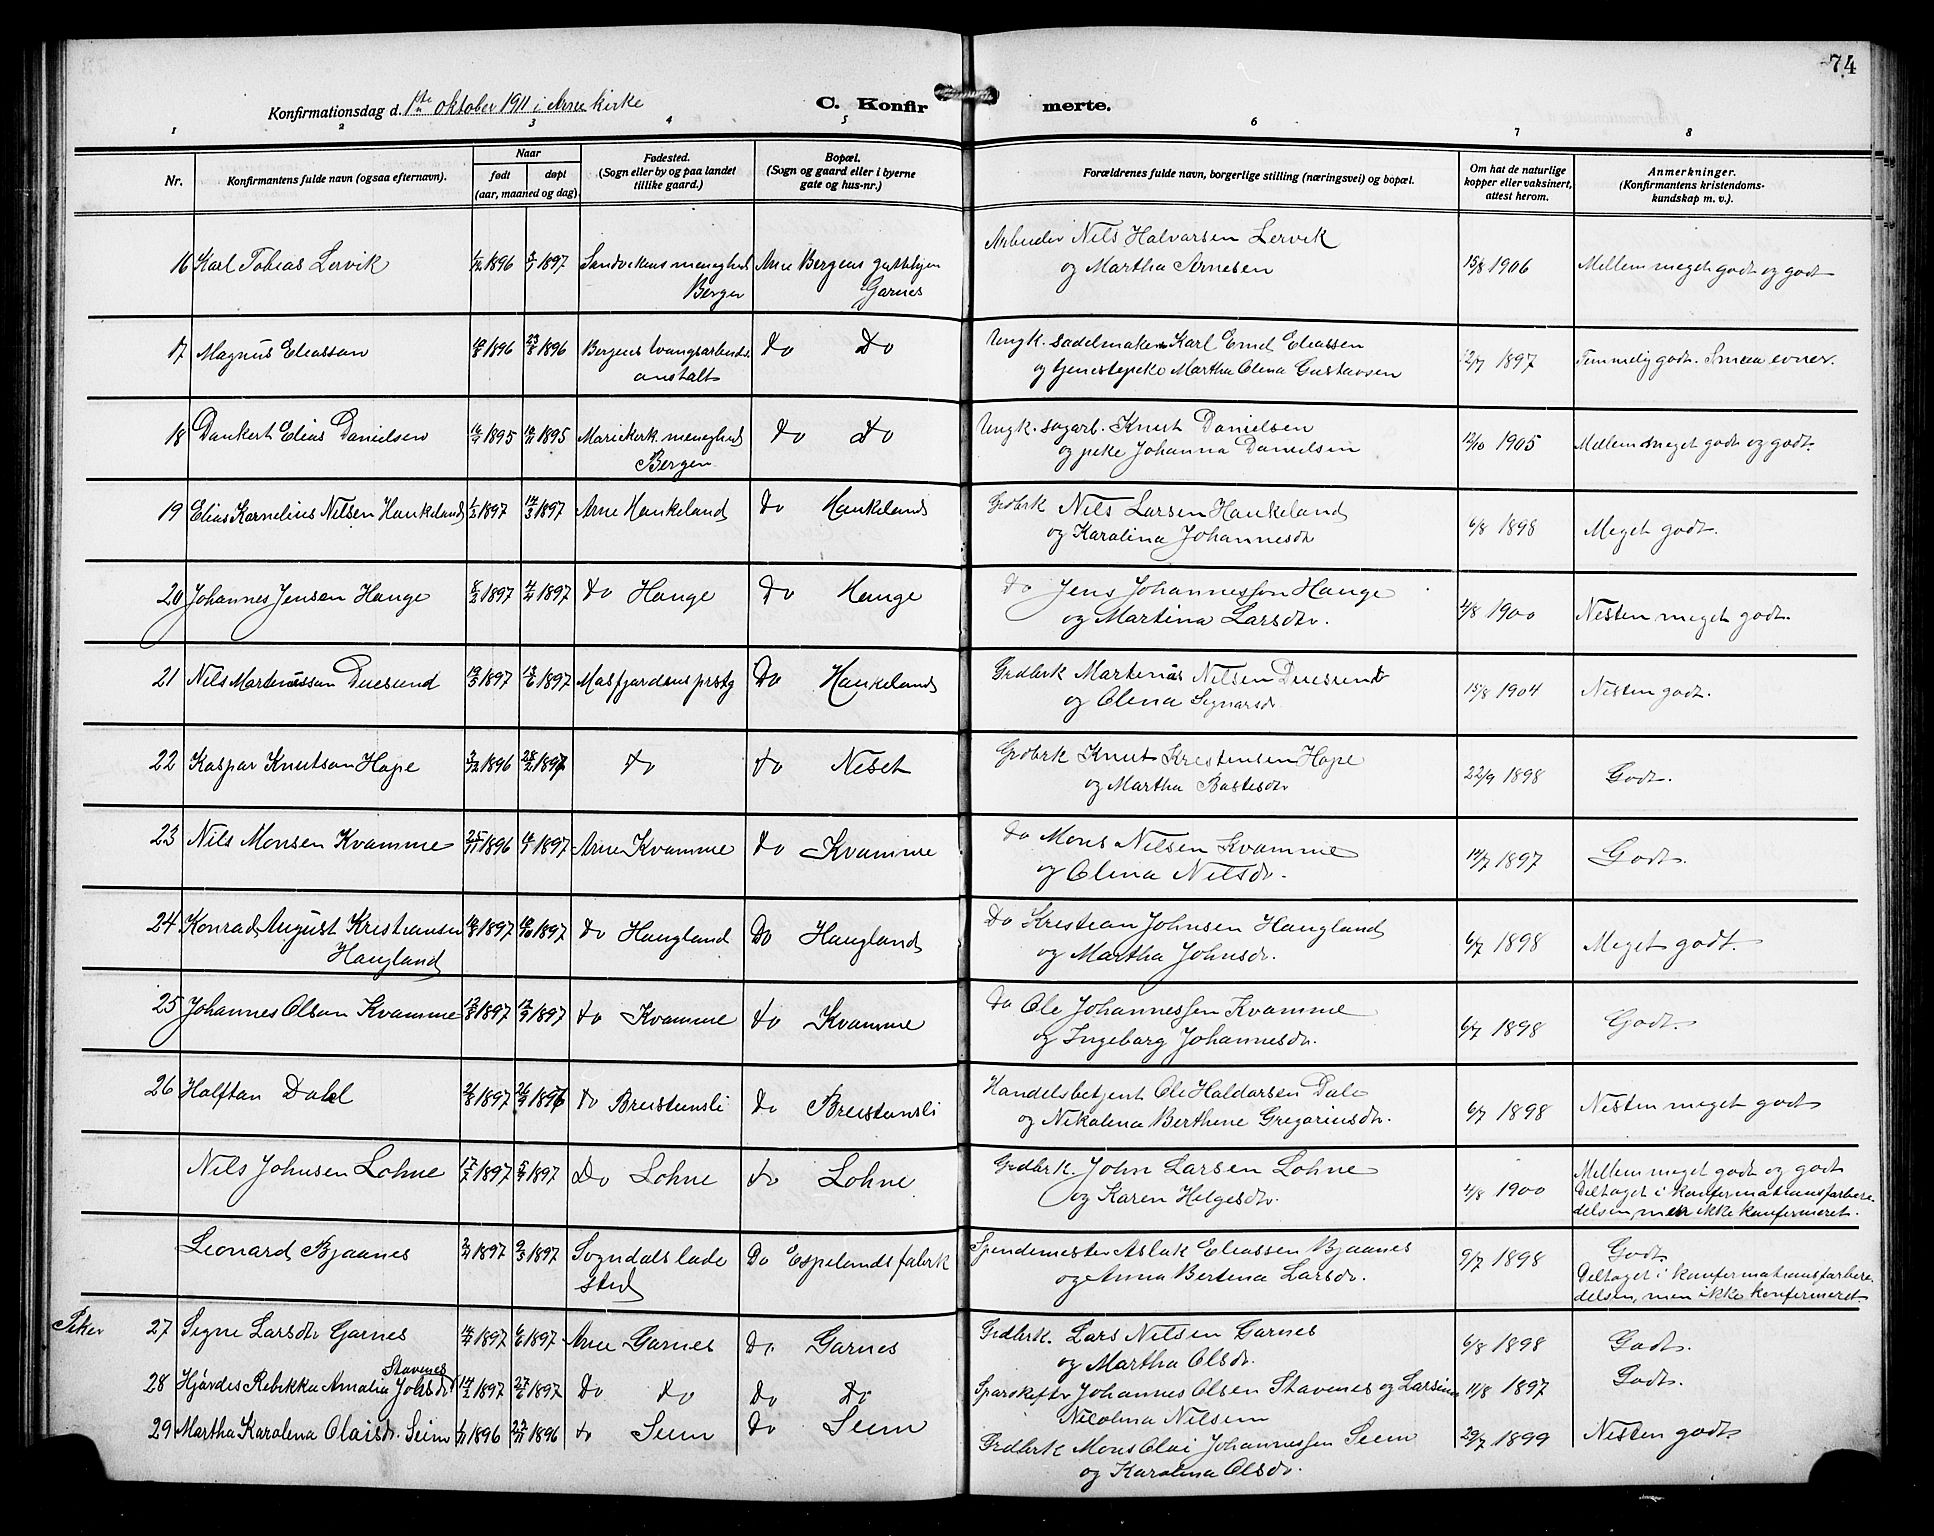 74
Konfirmationsdag d. 1ste oktober 1911 i Arne kirke C. Konfirmerte.
1 2 3 4 5 6 7 8
Nr. Konfirmantens fulde navn (ogsaa efternavn). Naar født døpt (aar, maaned og dag) Fødested. (Sogn eller by og paa landet tillike gaard.) Bopæl. (Sogn og gaard eller i byerne gate og hus-nr.) Forældrenes fulde navn, borgerlige stilling (næringsvei) og bopæl. Om hat de naturlige kopper eller vaksinert, attest herom. Anmerkninger. (Konfirmantens kristendomskundskap m. v.).
16 Karl Tobias Lervik 1896 1897 Sandvikens menighed Bergen Arne Bergens guttehjem Garnes Arbeider Nils Halvarsen Lervik 15/8 1906 Mellem meget godt og godt
og Martha Arnesen
17 Magnus Eliassan 1896 23/8 1896 Bergens tvangsarbeids anstalt Do Do Ungk. sadelmaker Karl Emil Eliassen 12/7 1897 Temmelig godt. Smaa evner.
og tjenestepike Martha Olena Gustavsen
18 Dankert Elias Danielsen 1895 1895 Mariekirk. menighed Bergen Do Do Ungk. sagarb. Knut Danielsen 12/10 1905 Mellem meget godt og godt.
og pike Johanna Danielsen
19 Elias Kornelius Nilsen Haukeland 1/2 1897 14/3 1897 Arne Haukeland Do Haukeland Grdbrk Nils Larsen Haukeland 6/8 1898 Meget godt.
og Karolina Johannesdr
20 Johannes Jensen Hauge 8/2 1897 1897 Do Hauge Do Hauge Do Jens Johannessen Hauge 4/8 1900 Nesten meget godt.
og Martina Larsdtr.
21 Nils Martinussan Duesund 19/3 1897 1897 Masfjordens prstg Do Haukeland Grdbrk Martinus Nilsen Duesund 15/8 1904 Nesten godt.
og Olena
22 Kaspar Knutsan Hope 1896 28/2 1897 do do Neset Grdbrk Knut Kristensen Hope 22/9 1898 Godt.
og Martha Bastesdtr
23 Nils Monsen Kvamme 25/11 1896 1897 Arne Kvamme Do Kvamme Do Mons Nilsen Kvamme 14/7 1897 Godt.
og Olena Nilsdr.
24 Konrad August Kristiansen Haugland 1897 1897 Do Haugland Do Haugland Do Kristian Johnsen Haugland 6/7 1898 Meget godt.
og Martha Johnsdr.
25 Johannes Olsan Kvamme 1897 1897 do Kvamme do Kvamme Do Ole Johannessen Kvamme 6/7 1898 Godt.
og Ingeborg Johannesdr.
26 Halftan Dahl 1897 do Breistensli Do Breistensli Handelsbetjent Ole Haldorsen Dale 6/7 1898 Nesten meget godt
og Nikolina Berthine Gregoriusdtr.
Nils Johnsen Lohne 1897 1897 Do Lohne do Lohne Grdbrk. John Larsen Lohne 4/8 1900 Mellem meget godt og godt
og Karen Helgesdtr. Deltaget i konfirmationsforberedelsen, men ikke konfirmeret.
Leonard Bjaanes 1897 1897 Sogndals ladested Do Espelands fabrk Spindemester Aslak Eliassen Bjaanes 9/7 1898 Godt
og Anna Bertina Larsdr. Deltaget i konfirmationsforberedelsen, men ikke konfirmeret
Piker 27 Signe Larsdtr Garnes 1897 1897 Arne Garnes Do Garnes Grdbrk. Lars Nilsen Garnes 6/8 1898 Godt.
og Martha Olsdr.
28 Hjørdis Rebekka Amalia Johsdr Stavenes 14/2 1897 27/6 1897 Do Do Do Do Johannes Olsen Stavenes og Larsina 11/8 1897 Godt.
Nicolina Nilsen
29 Martha Karolina Olaisdr. Seim 1896 1896 do Seim Do Seim Grdbrk Mons Olai Johannessen Seim 29/7 1899 Nesten godt
og Karolina Olsdr.